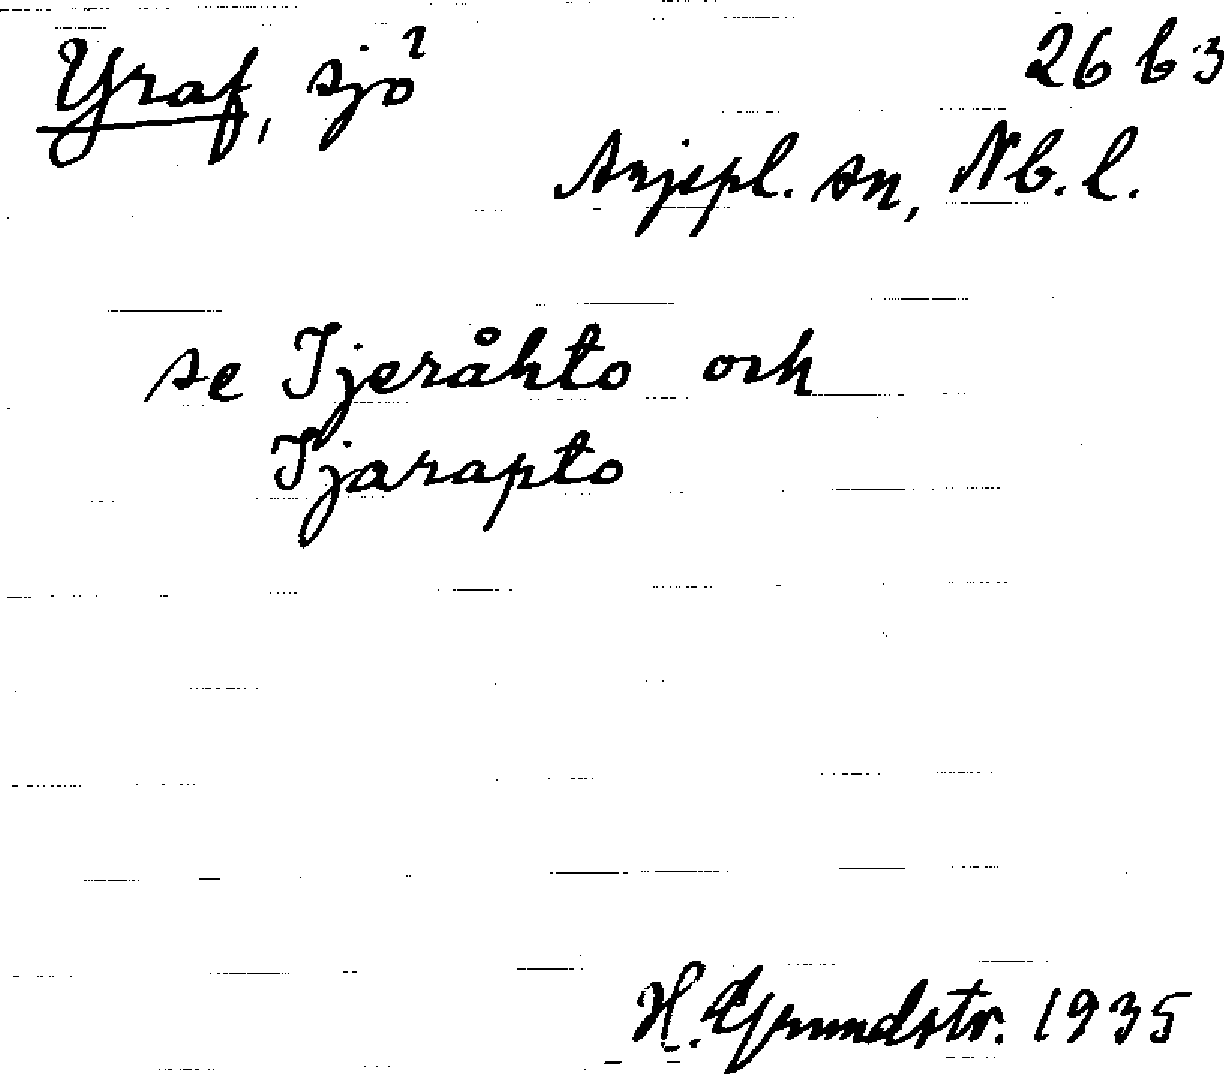 Yraf, sjö 26 b 3
Arjepl. sn, Nb. l.
se Tjeråkto och
Tjarapto
H. Grundstr. 1935